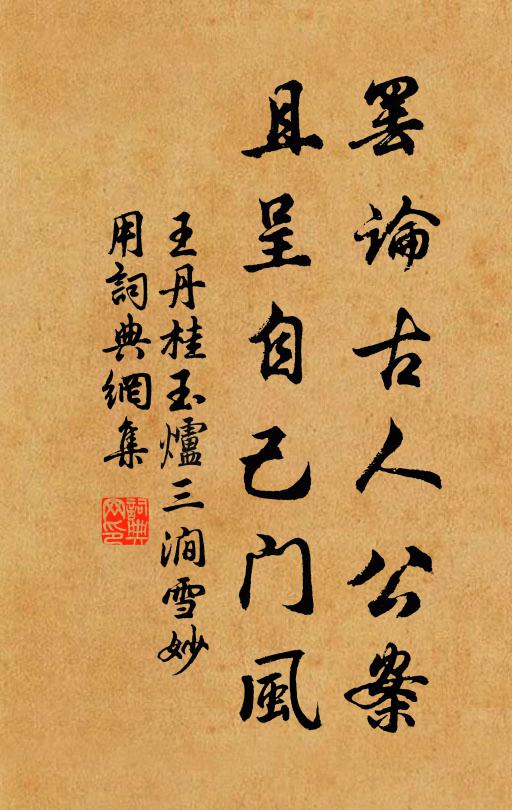 罢論古人公案
且呈自己门風
王丹桂玉爐三澗雪妙
用詞典網集
詞典網印